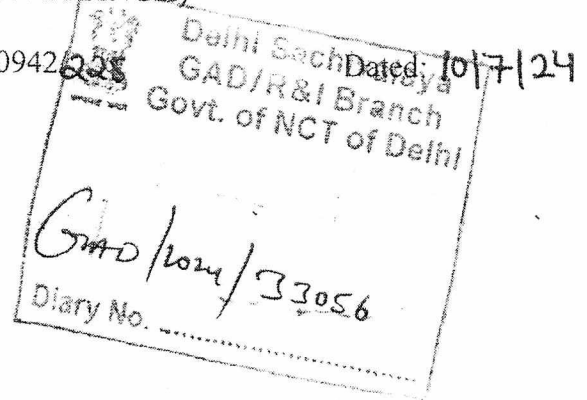 0942/228 Dated: 10/7/24
Delhi Sachivalaya
GAD/R&I Branch
Govt. of NCT of Delhi
GAD/2024/33056
Diary No.